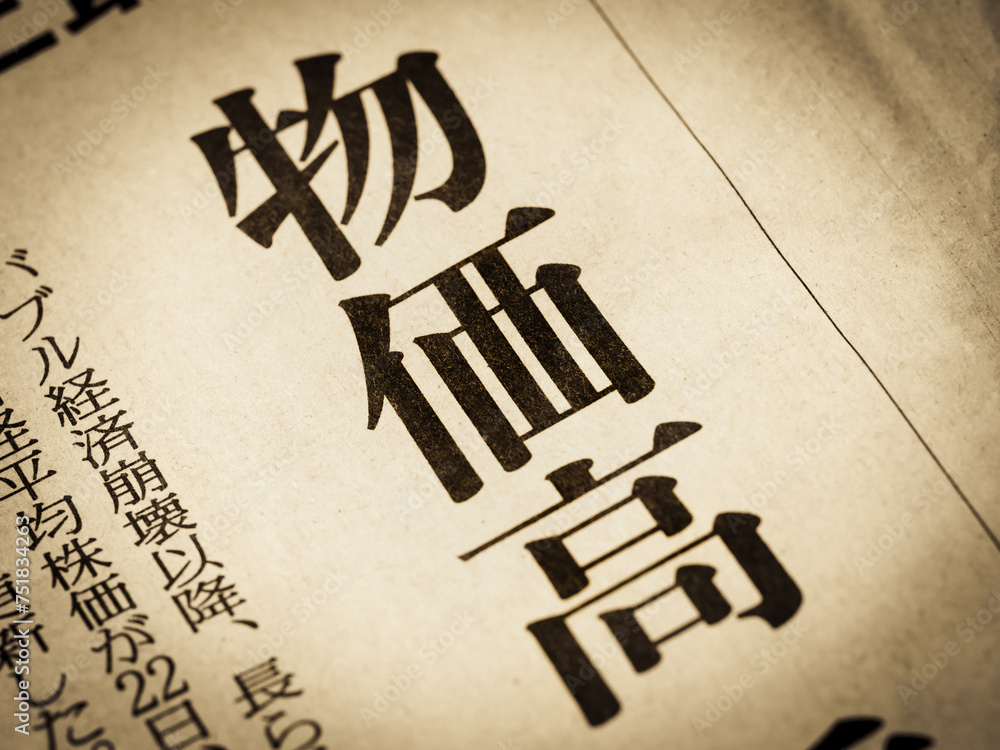 物価高
バブル経済崩壊以降、長ら
経平均株価が22日、
更新した。